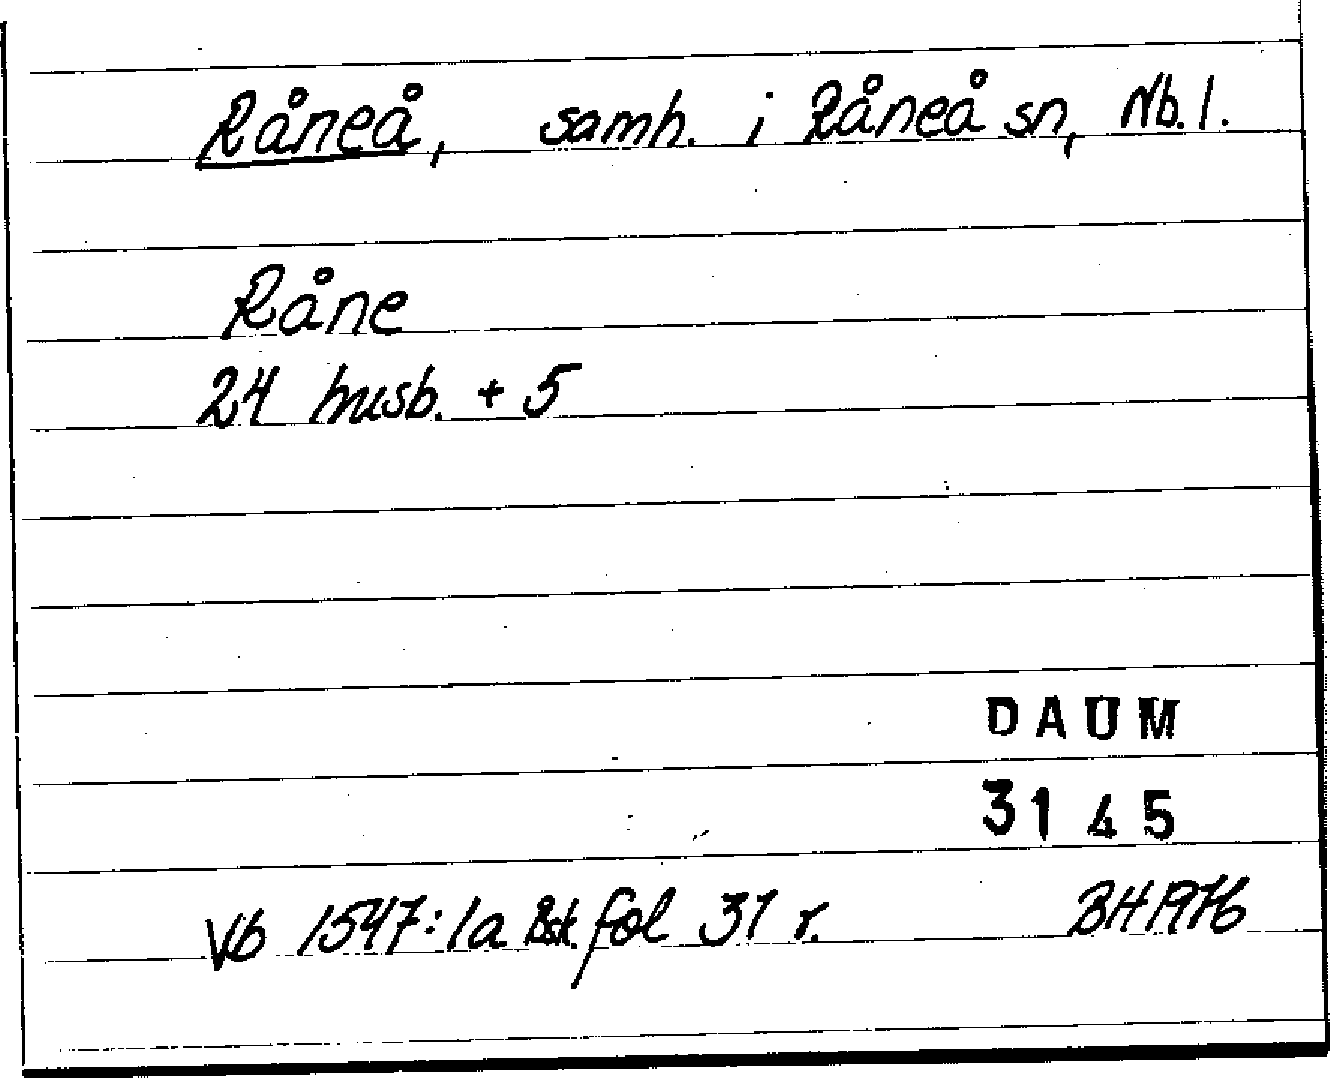 Råneå, samh. i Råneå sn, Nb.l.
Råne
24 husb. + 5
DAUM
3145
Vb 1547:1a Åsk fol 31 r. BH 1976